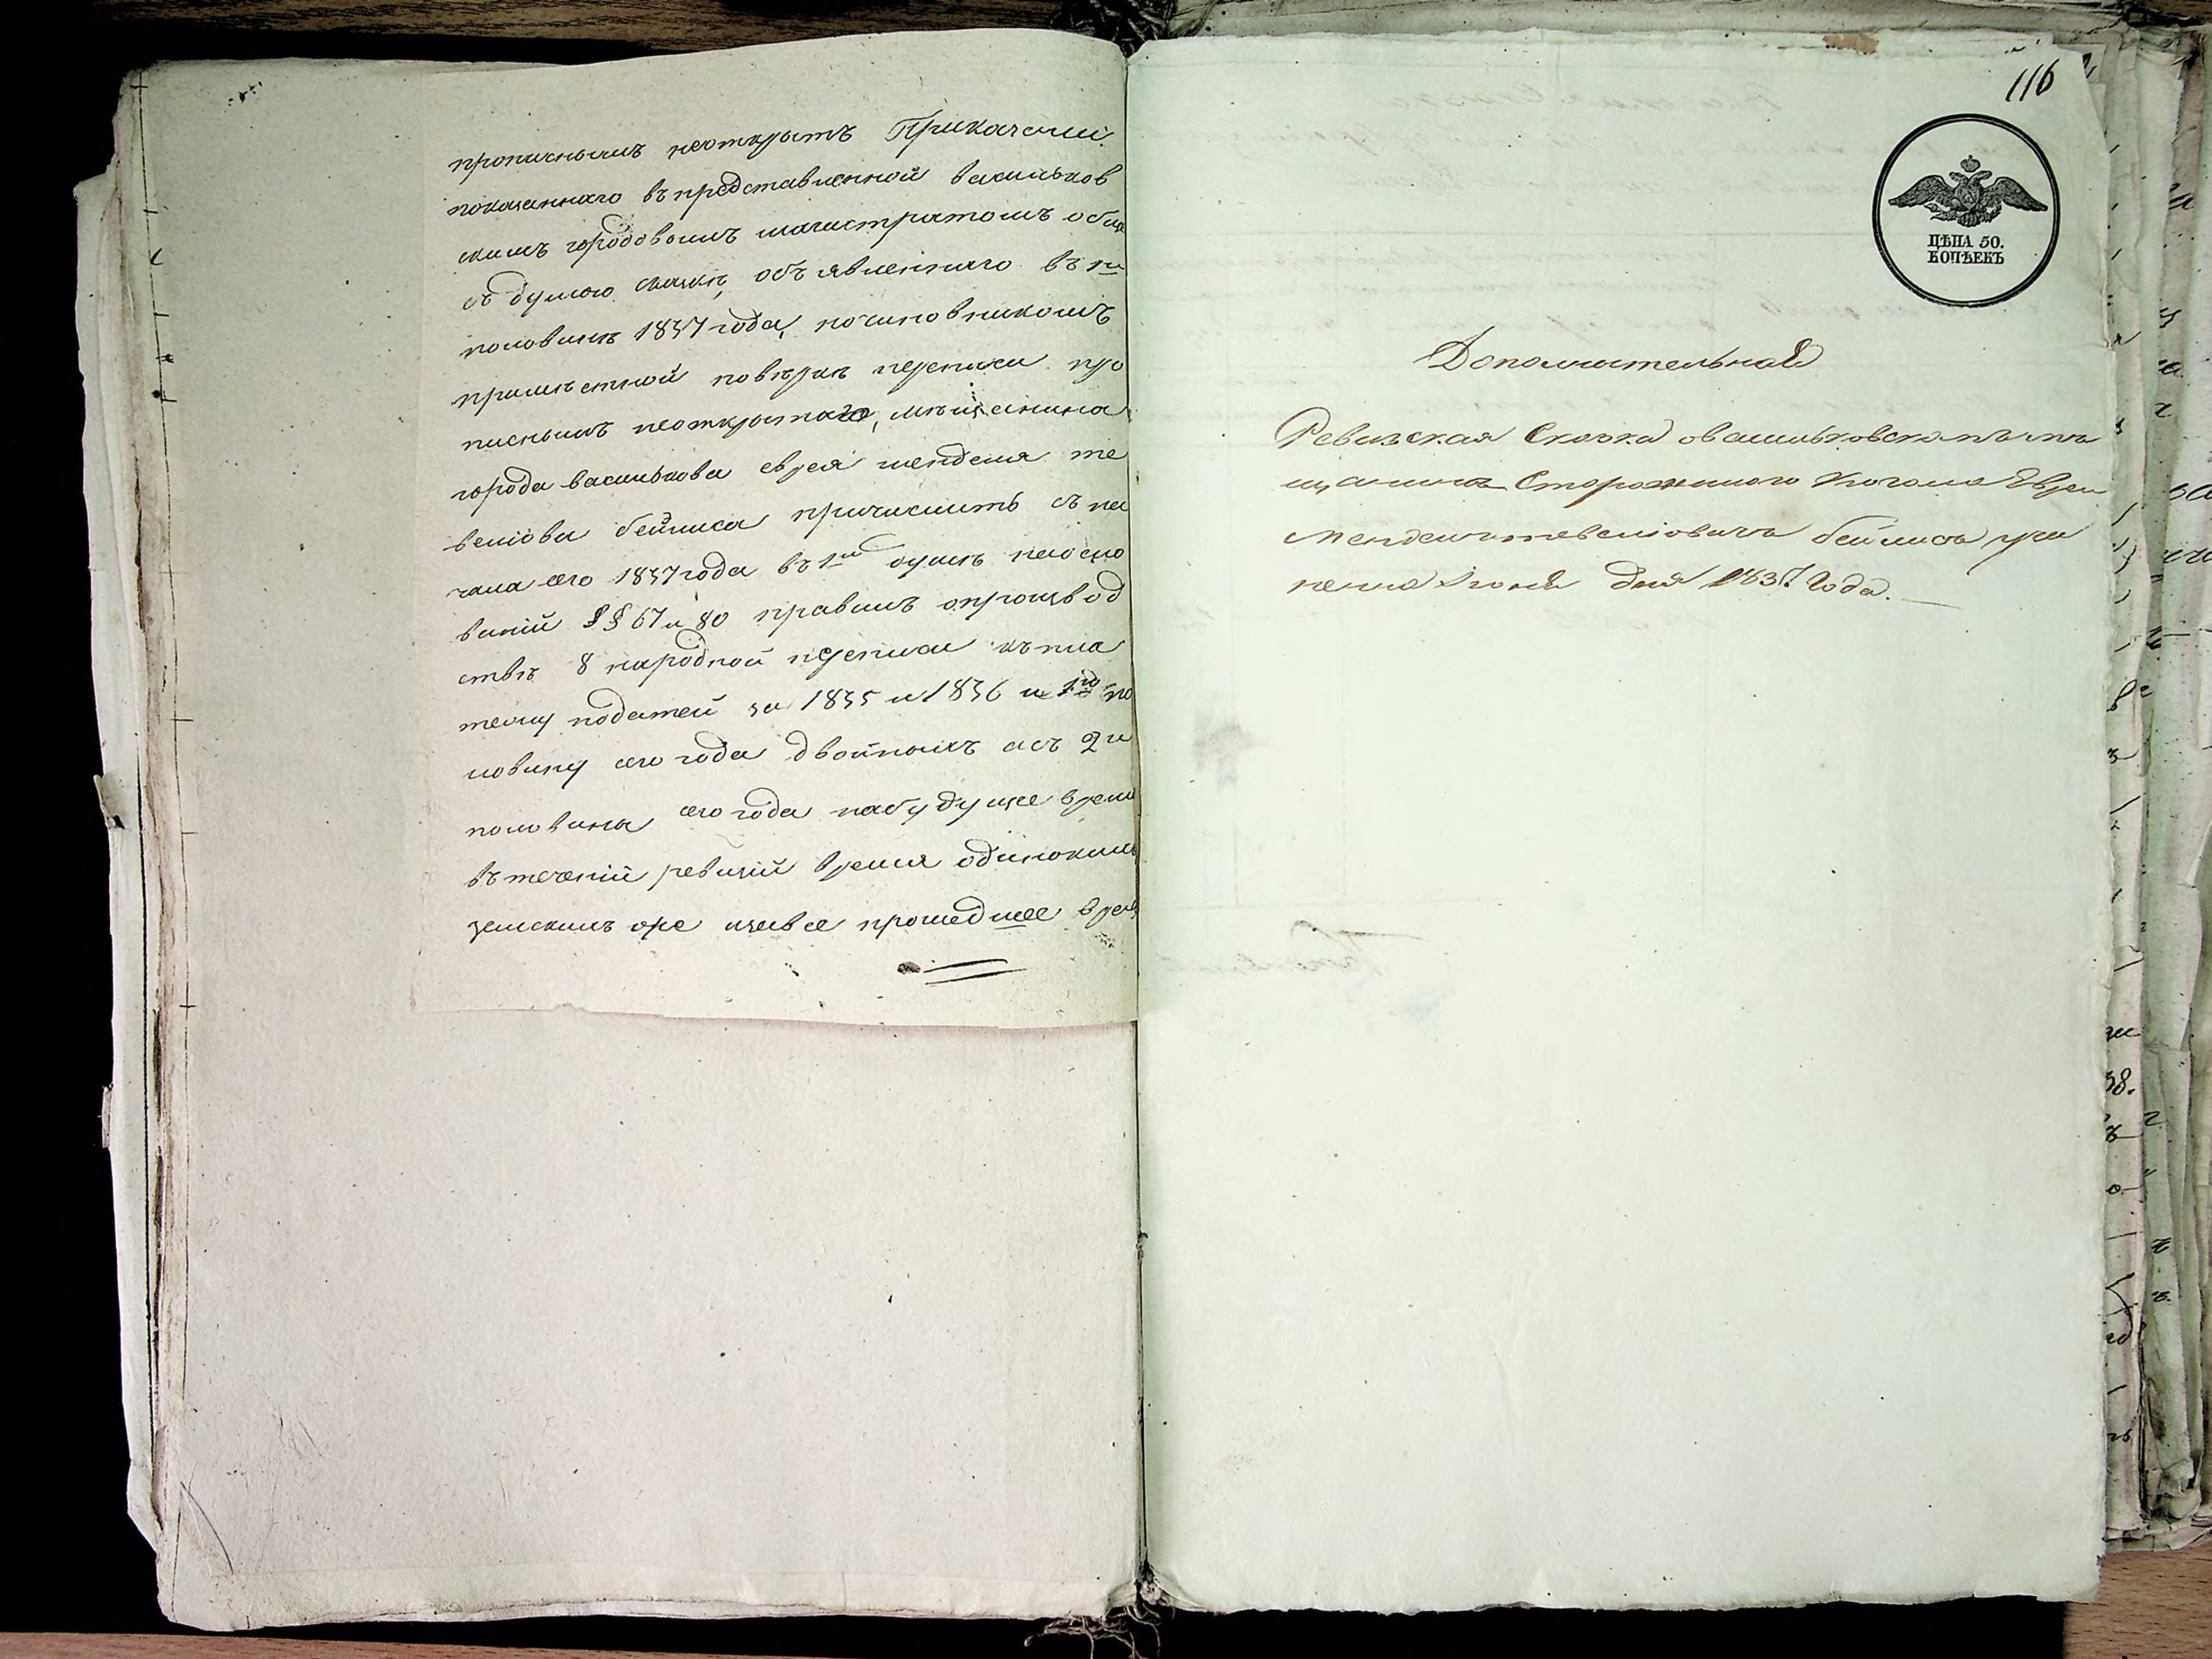 прописнымъ неоткрытъ Приказали:
показаннаго въ представленной васильков
скимъ городовымъ магистратомъ обще
съ думою сказкѣ, объявленнаго въ 1й
половинѣ 1837 года, по чиновникомъ
при мѣстной повѣркѣ переписи про
писнымъ неоткрытаго, мѣщанина
города василькова еврея менделя те
велiова бейлиса причислить съ на
чала сего 1837 года въ 1й душѣ на осно
ванiи §§ 67 и 80 правилъ о производ
ствѣ 8 народной переписи къ пла
тежу податей за 1835 и 1836 и 1ю по
ловину сего года двойныхъ а съ 2й
половины сего года на будущее время
въ теченiи ревизiи время одинокимъ
земскимъ же за все прошедшее время
116
ЦѢНА 50.
КОПѢЕКЪ
Дополнительная
Ревизская Сказка о васильковскомъ мѣ
щанинѣ Стороннаго Кагала Евреи
Менделѣ тевелiовичѣ бейлисѣ учи
нена Iюня дня 1837 Года.